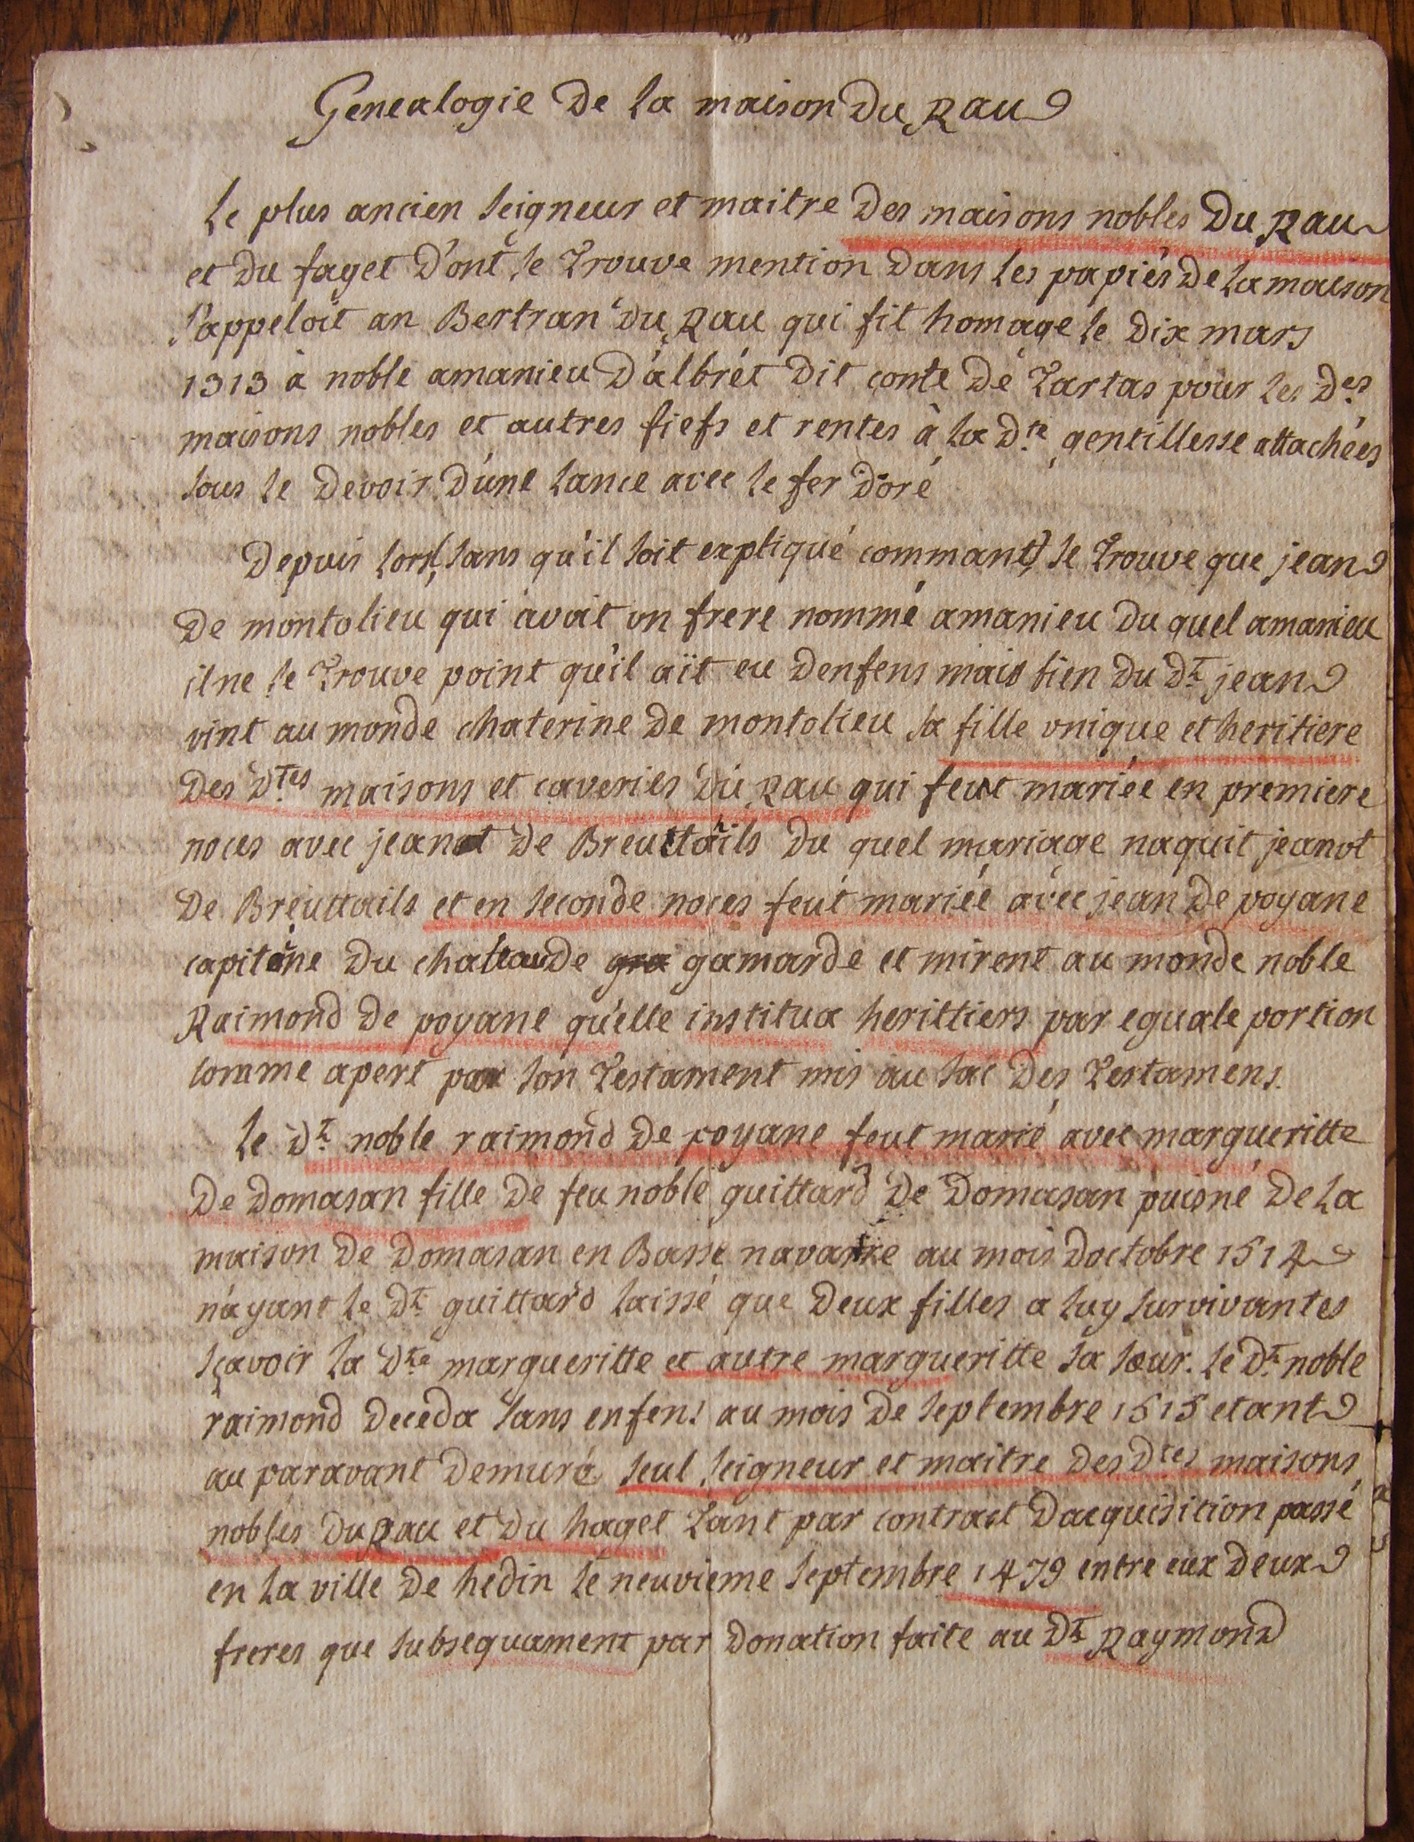 Genealogie De la maison Du Rau
Le plus ancien seigneur et maitre Des maisons nobles Du Rau
et Du faget D'ont se trouve mention Dans les papiés De la maison
s'appeloit an Bertran Du Rau qui fit homage le Dix mars
1313 à noble amanieu D'albrét Dit conte De Tartas pour les Des
maisons nobles et autres fiefs et rentes à la Dte gentillesse attachées
sous le Devoir D'une lance avec le fer Doré
Depuis lors (sans qu'il soit expliqué commant) se trouve que jean
De montolieu qui avoit un frere nommé amanieu Du quel amanieu
il ne se trouve point qu'il aït eu Denfens mais bien Du Dt jean
vint au monde chaterine De montolieu sa fille unique et heritiere
Des Dtes maisons et caveries Du Rau qui feut mariée en premiere
noces avec jeanot De Breuttails Du quel mariage naquit jeanot
De Breuttails et en seconde noces feut mariée avec jean De poyane
capitene Du chateau De gra gamarde et mirent au monde noble
Raimond De poyane qu'elle institua herittiers par eguale portion
comme apert par son Testament mis au sac Des Testamens.
Le Dt noble raimond De poyane feut marié avec margueritte
De Domasan fille De feu noble guittard De Domasan puisné De la
maison De Domasan en Basse navarre au mois Doctobre 1514
n'ayant le Dt guittard laissé que Deux filles a luy survivantes
sçavoir la Dte margueritte et autre margueritte sa sœur. le Dt noble
raimond Deceda sans enfens au mois De septembre 1515 etant
au paravant Demuré seul seigneur et maitre Des Dtes maisons
nobles Du Rau et Du haget Tant par contract Dacquisition passé
en la ville De hedin le neuvieme septembre 1479 entre eux Deux
freres que subsequament par Donation faite au Dt Raymond